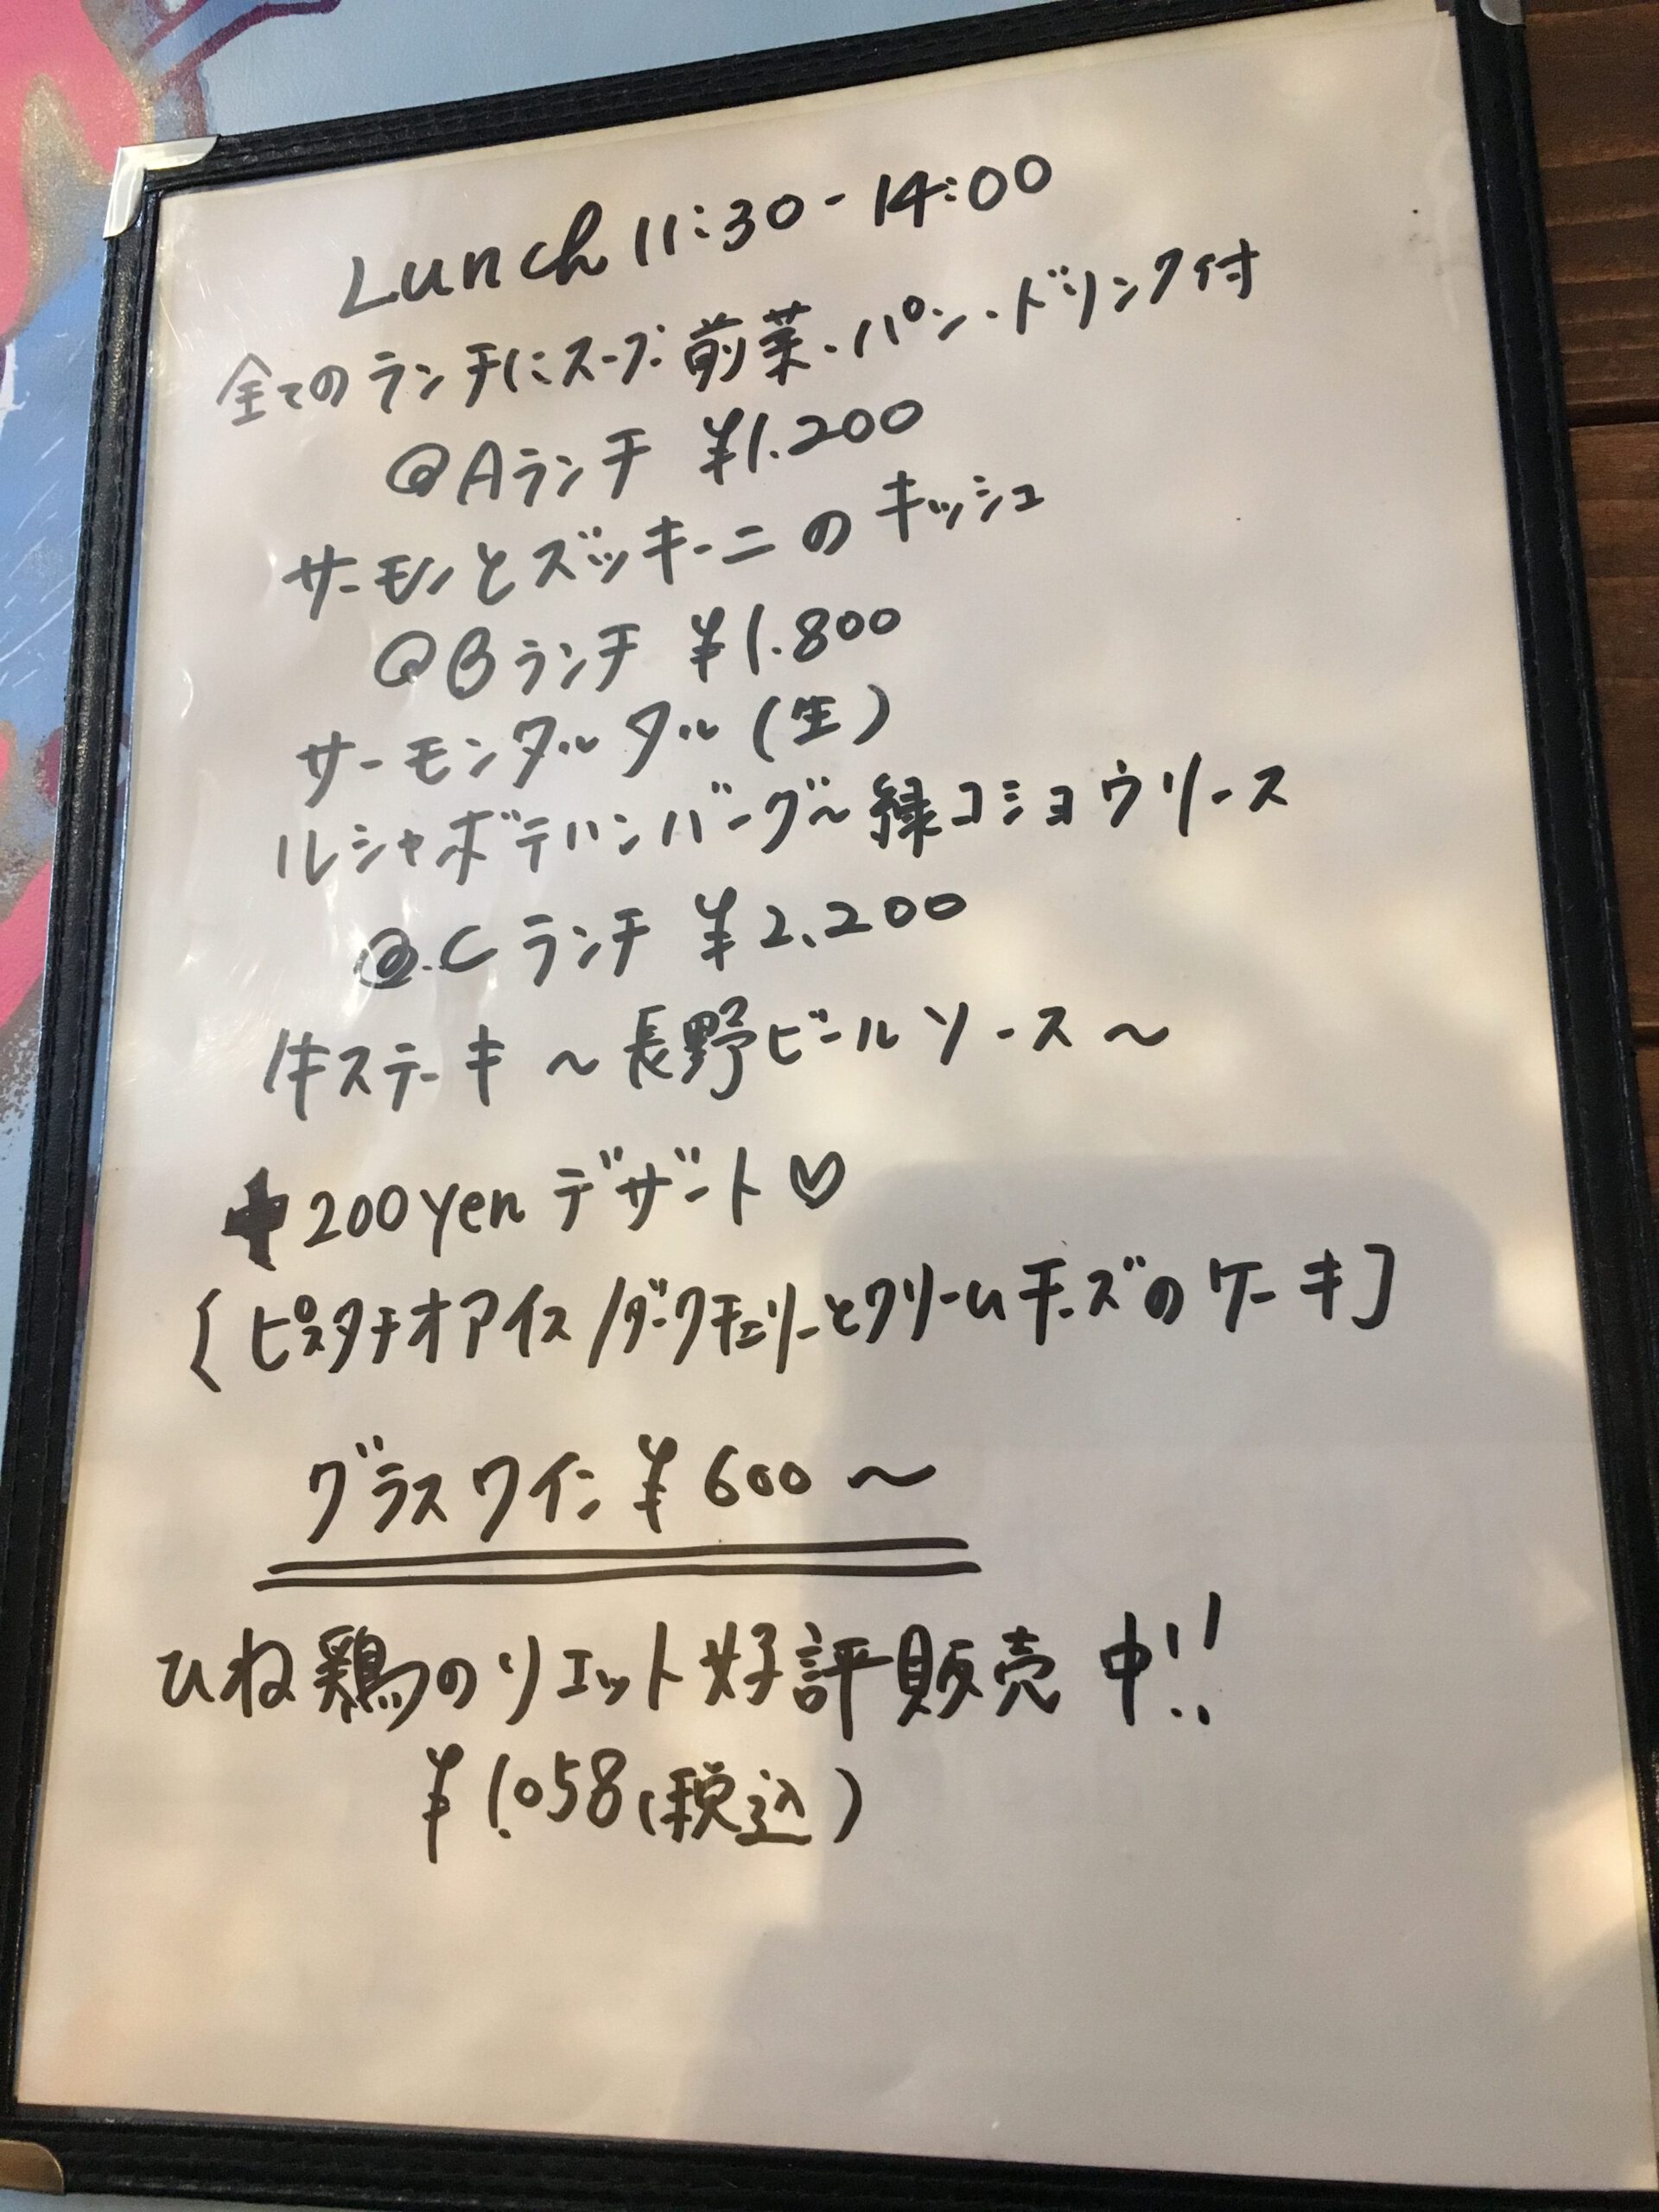 Lunch 11:30-14:00
全てのランチにスープ・前菜・パン・ドリンク付
@Aランチ ¥1.200
サーモンとズッキーニのキッシュ
@Bランチ ¥1.800
サーモンタルタル(生)
ルシャボテハンバーグ〜緑コショウソース
@.Cランチ ¥2.200
牛ステーキ 〜長野ビールソース〜
+200yen デザート♡
[ピスタチオアイス/ダークチェリーとクリームチーズのケーキ]
グラスワイン ¥600〜
ひね鶏のリエット好評販売中!!
¥1.058(税込)